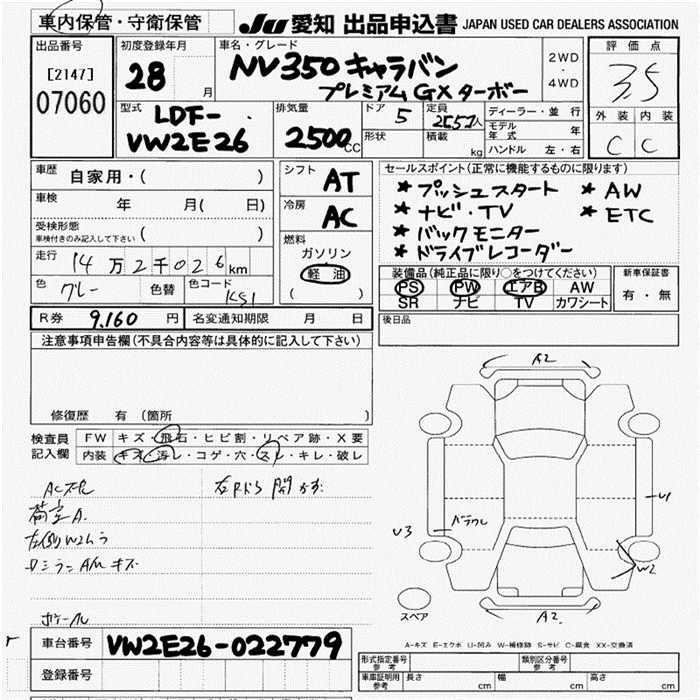 車内保管・守衛保管 JU 愛知 出品申込書 JAPAN USED CAR DEALERS ASSOCIATION
出品番号
[2147]
07060
初度登録年月
28 月
車名・グレード
NV350キャラバン
プレミアムGXターボー
2WD
・
4WD
評価点
3.5
外装 内装
C C
型式
LDF-
VW2E26
排気量
2500cc
ドア 5
形状
定員
積載 kg
ディーラー・並行
モデル年式 年
ハンドル 左・右
車歴 自家用・( )
車検 年 月( 日)
受検形態
車検付きのみ記入して下さい ( )
走行 14万2千026km
色 グレー 色替 色コード KS1
シフト AT
冷房 AC
燃料
ガソリン
軽油
( )
セールスポイント(正常に機能するものに限ります)
★ プッシュスタート ★ AW
★ ナビ・TV ★ ETC
★ バックモニター
★ ドライブレコーダー
装備品(純正品に限り○をつけてください)
PS PW エアB AW
SR ナビ TV カワシート
新車保証書
有・無
R券 9,160 円 名変通知期限 月 日
後日品
注意事項申告欄(不具合内容等は具体的に記入して下さい)
修復歴 有 (箇所
検査員記入欄
FW キズ・飛石・ヒビ割・リペア跡・X要
内装 キズ・汚レ・コゲ・穴・スレ・キレ・破レ
荷室A.
A2
U1
U3
W2
A2
スペア
A-キズ E-エクボ U-凹み W-補修跡 S-サビ C-腐食 XX-交換済
車台番号 VW2E26-022779
登録番号
形式指定番号
参考
類別区分番号
参考
車庫証明用
参考
長さ cm 幅 cm 高さ cm